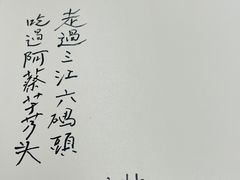 走過三江六碼頭
吃過阿蔡芋艿头